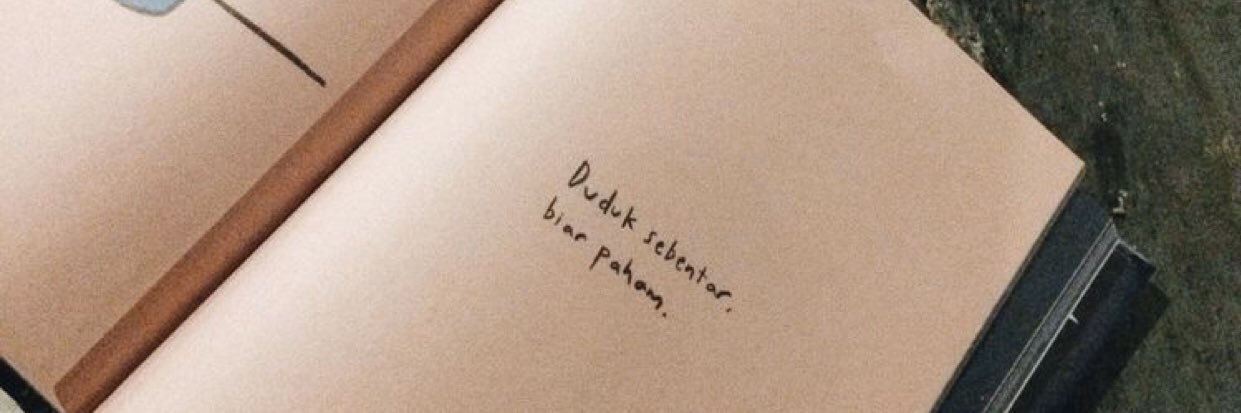 Duduk sebentar,
biar paham.